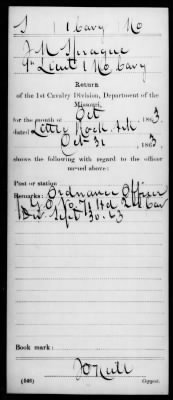 S | 1 Cavy | Mo
J. M. Sprague
1st Lieut 1 Mo Cavy
Return
of the 1st Cavalry Division, Department of the
Missouri,
for the month of Oct, 1863.
dated Little Rock Ark
Oct 31, 1863,
shows the following with regard to the officer
named above:
Post or station
Remarks: Ordnance Officer
Div Sept 30-63
Book mark:
(546) Copyist.